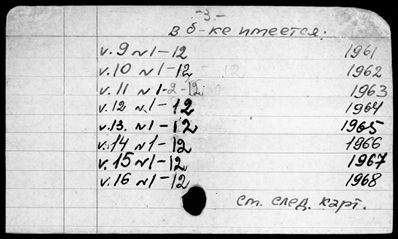 -3.-
в б-ке имеется.
v.9 N1-12 1961
v.10 N1-12 1962
v.11 N1-2-12 1963
v.12 N1-12 1964
v.13. N1-12 1965
v.14 N1-12 1966
v.15 N1-12 1967
v.16 N1-12 1968
См. след. карт.